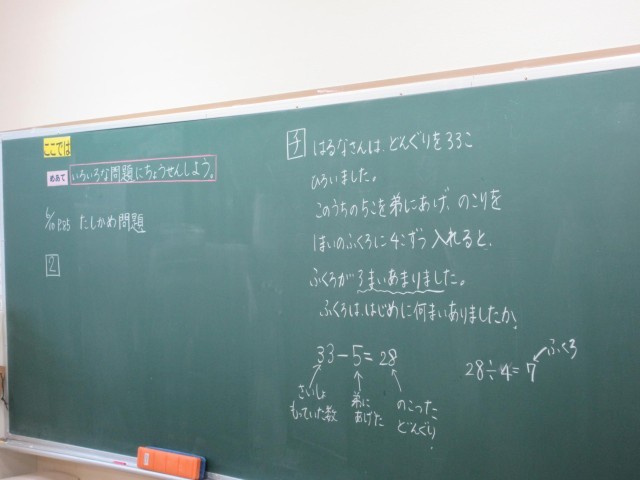 ここでは
めあて
いろいろな問題にちょうせんしよう。
6/10 P.85 たしかめ問題
2
子
はるなさんは、どんぐりを33こ
ひろいました。
このうちの5こを弟にあげ、のこりを
1まいのふくろに4こずつ入れると、
ふくろが3まいあまりました。
ふくろは、はじめに何まいありましたか。
33-5=28
さいしょ
もっていた数
弟に
あげた
のこった
どんぐり
28÷4=7
ふくろ